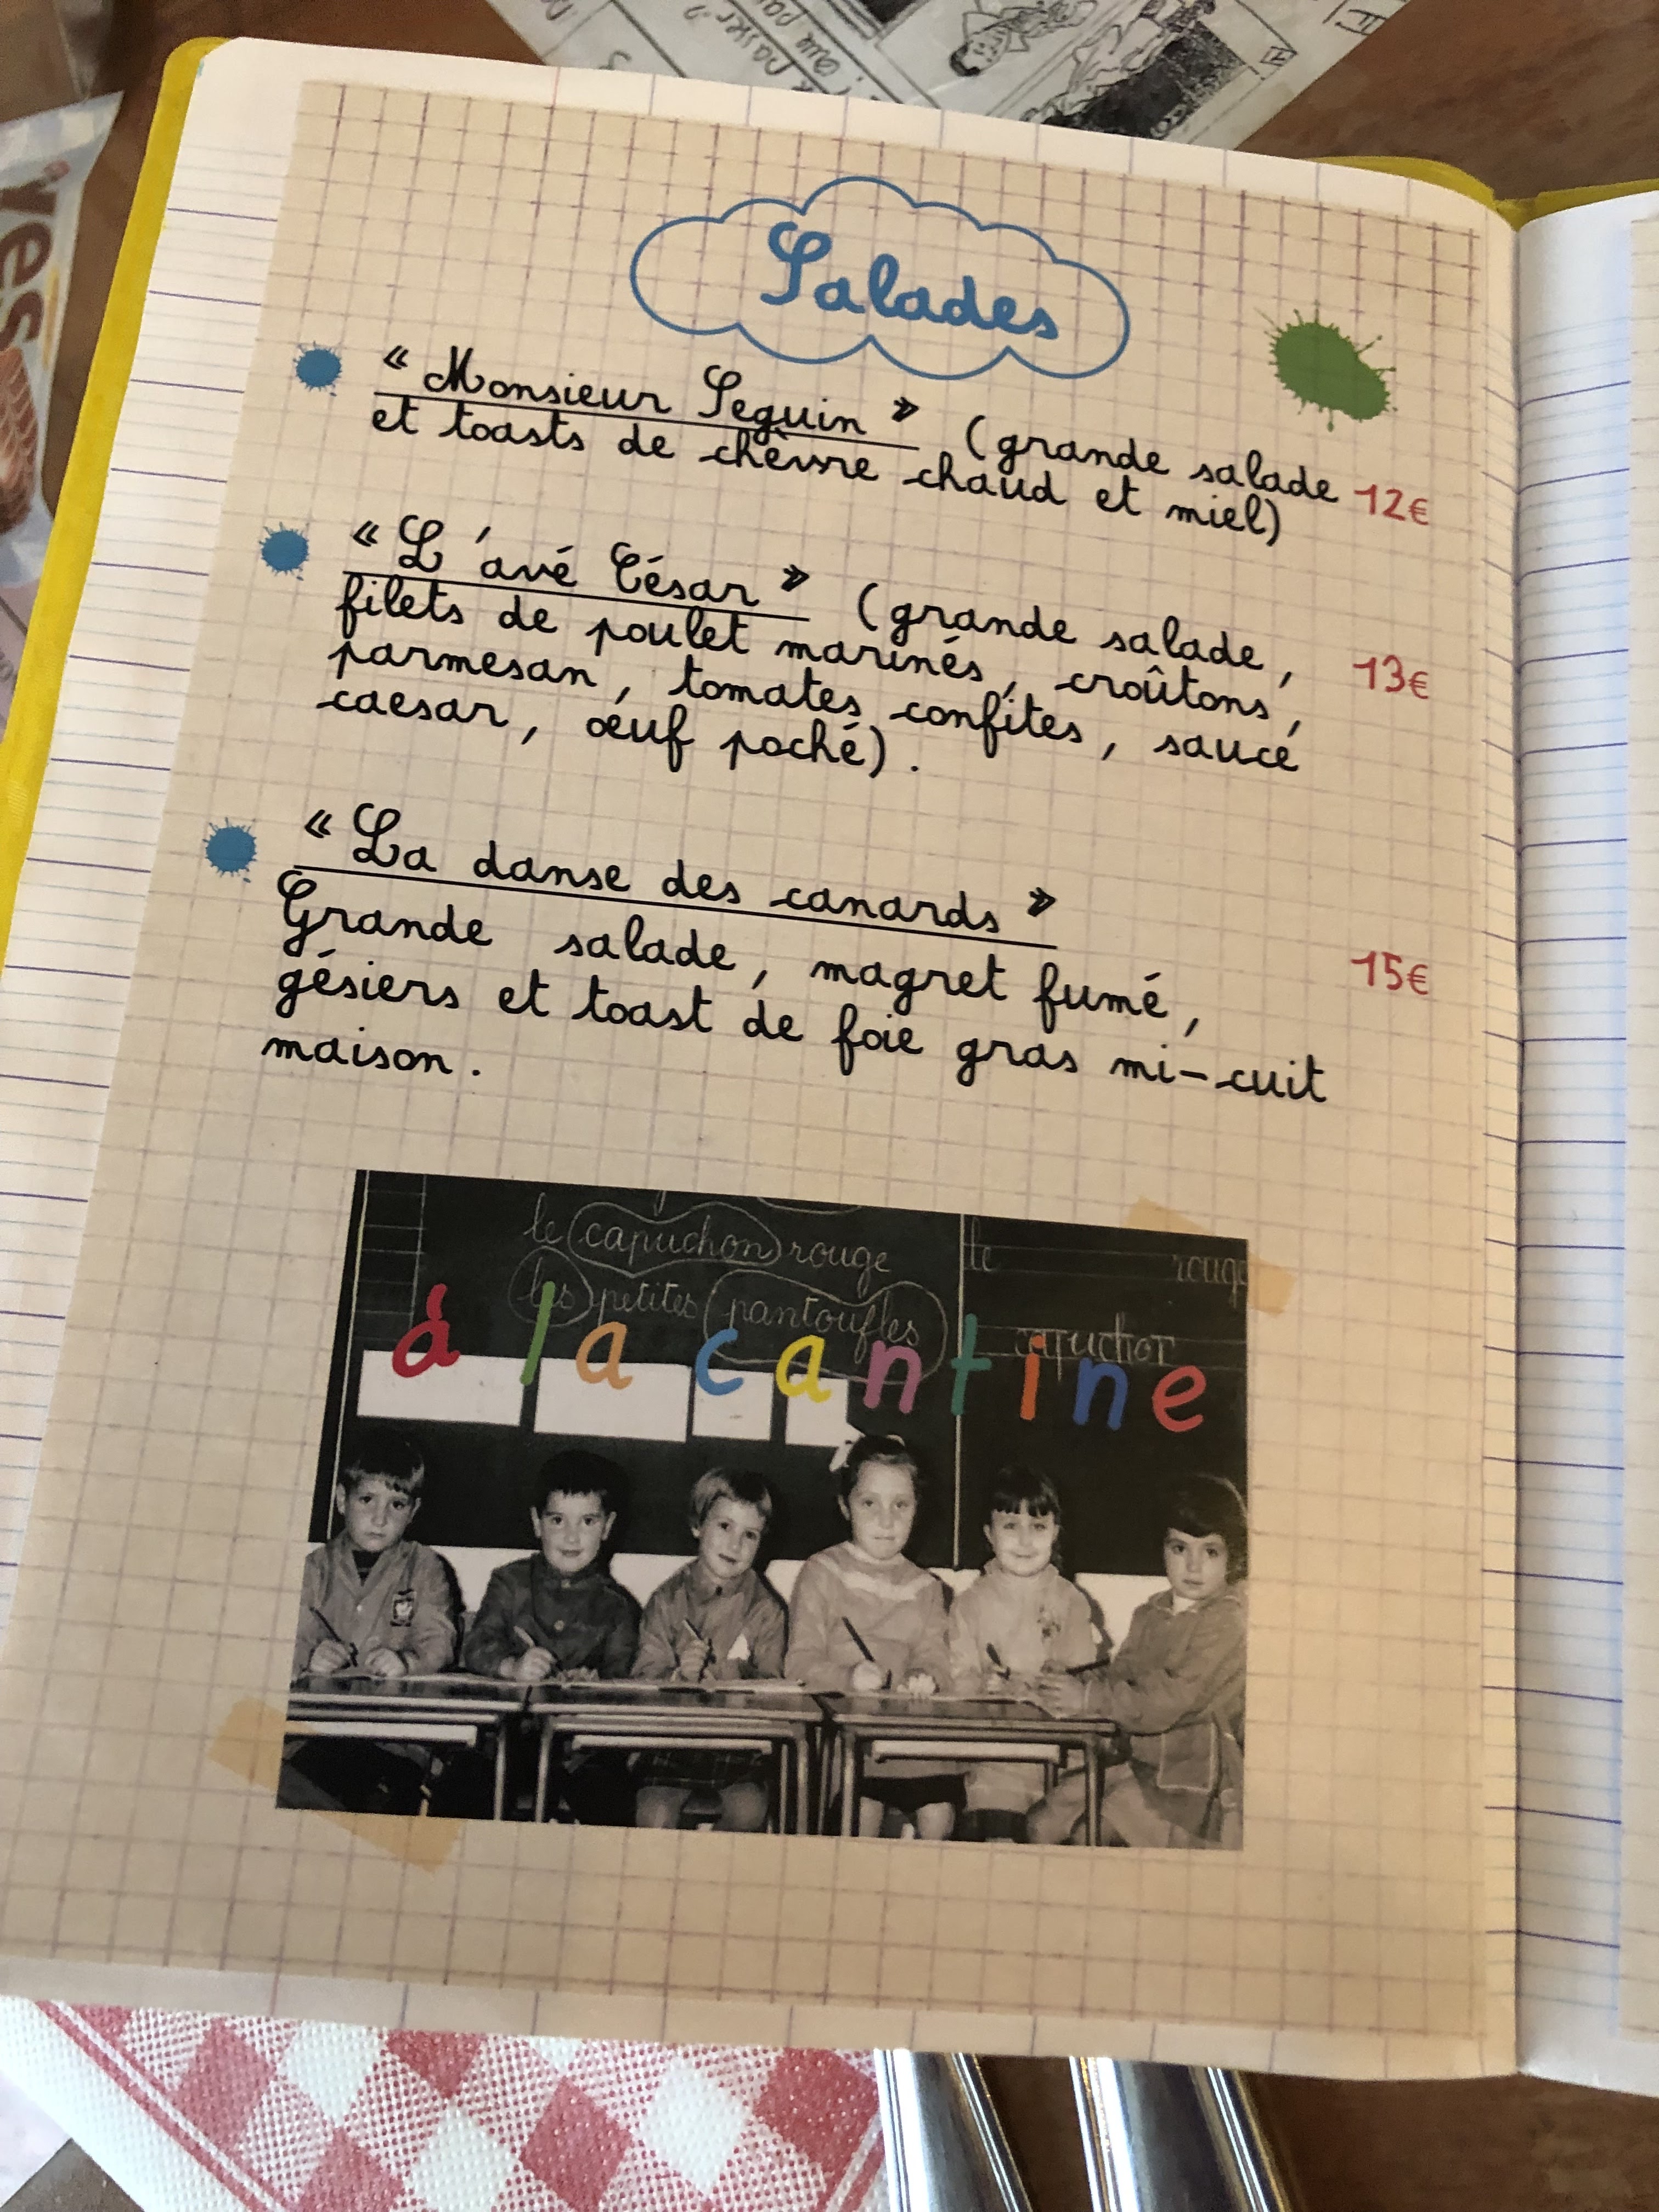 passer?
que pa
Yes
Salades
« Monsieur Seguin » (grande salade
et toasts de chèvre chaud et miel) 12€
« L'avé César » (grande salade,
filets de poulet marinés, croûtons, 13€
parmesan, tomates confites, sauce
caesar, œuf poché).
« La danse des canards »
Grande salade, magret fumé, 15€
gésiers et toast de foie gras mi-cuit
maison.
le capuchon rouge
le rouge
les petites pantoufles
capuchon
à la cantine